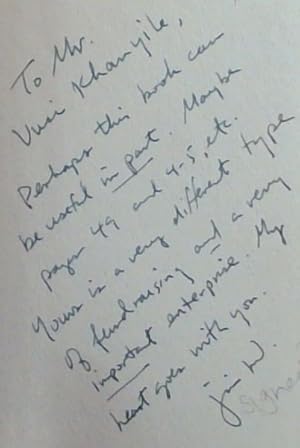 To Mr.
Vusi Khanyile,
Perhaps this book can
be useful in part. Maybe
pages 49 and 4-5, etc.
Yours is a very different type
of fundraising and a very
important enterprise. My
heart goes with you.
Jim W.
signed